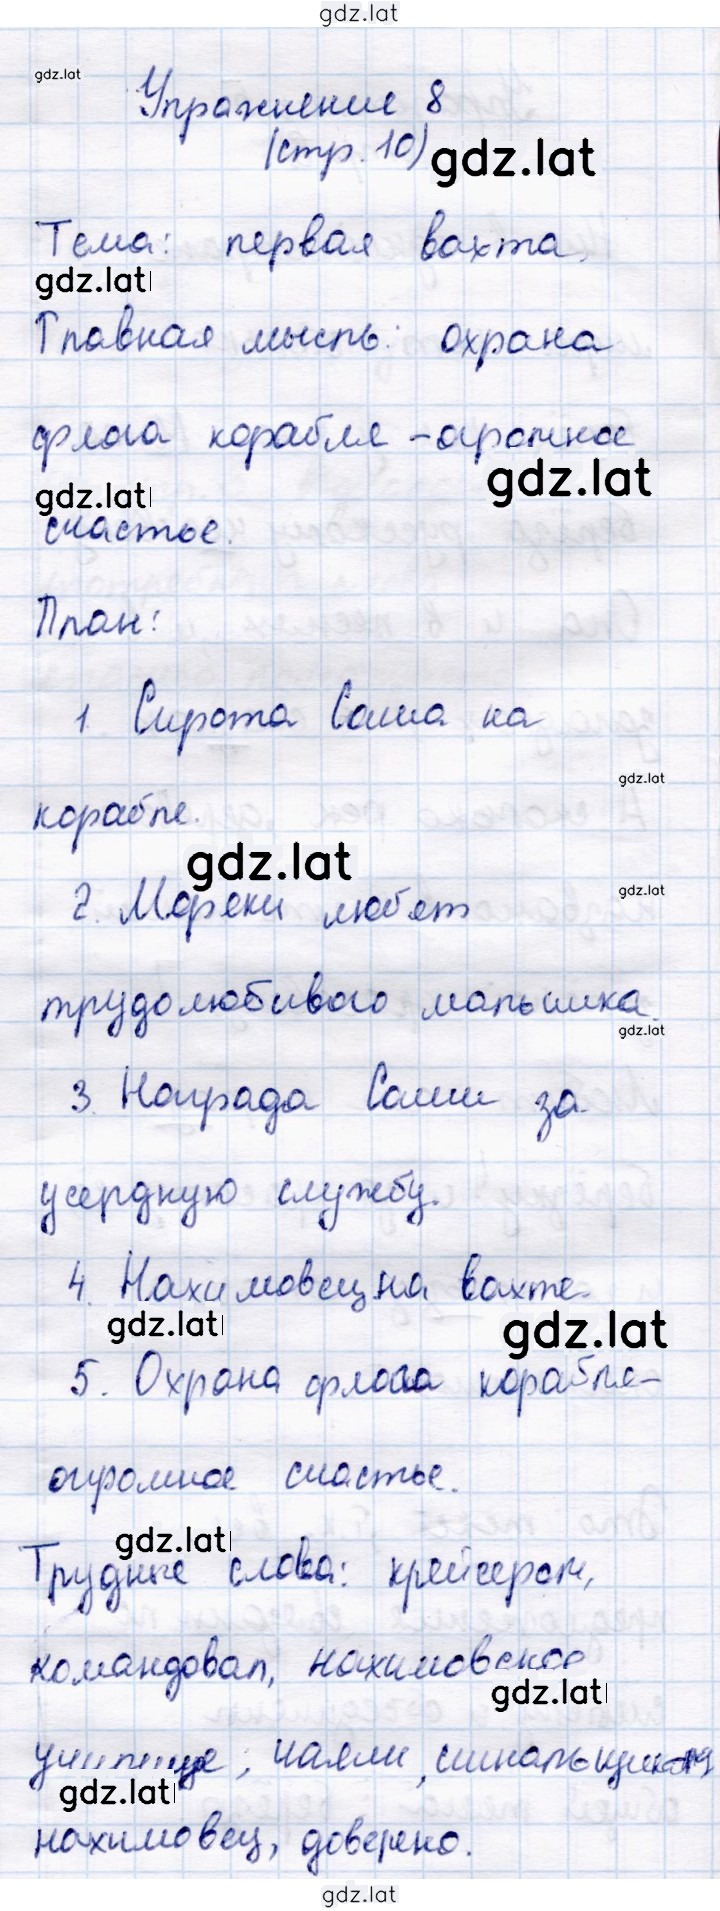 gdz.lat
gdz.lat
Упражнение 8
(стр. 10)
gdz.lat
Тема: первая вахта.
gdz.lat
Главная мысль: охрана
флага корабля - огромное
gdz.lat
gdz.lat
счастье.
План:
1. Сирота Саша на
gdz.lat
корабле.
gdz.lat
gdz.lat
2. Моряки любят
трудолюбивого малышка.
gdz.lat
3. Награда Саши за
усердную службу.
4. Нахимовец на вахте.
gdz.lat
gdz.lat
5. Охрана флага корабля-
огромное счастье.
gdz.lat
Трудные слова: крейсером,
командовал, нахимовское
gdz.lat
училище, чаяли, сигнальщиком,
gdz.lat
нахимовец, доверено.
gdz.lat